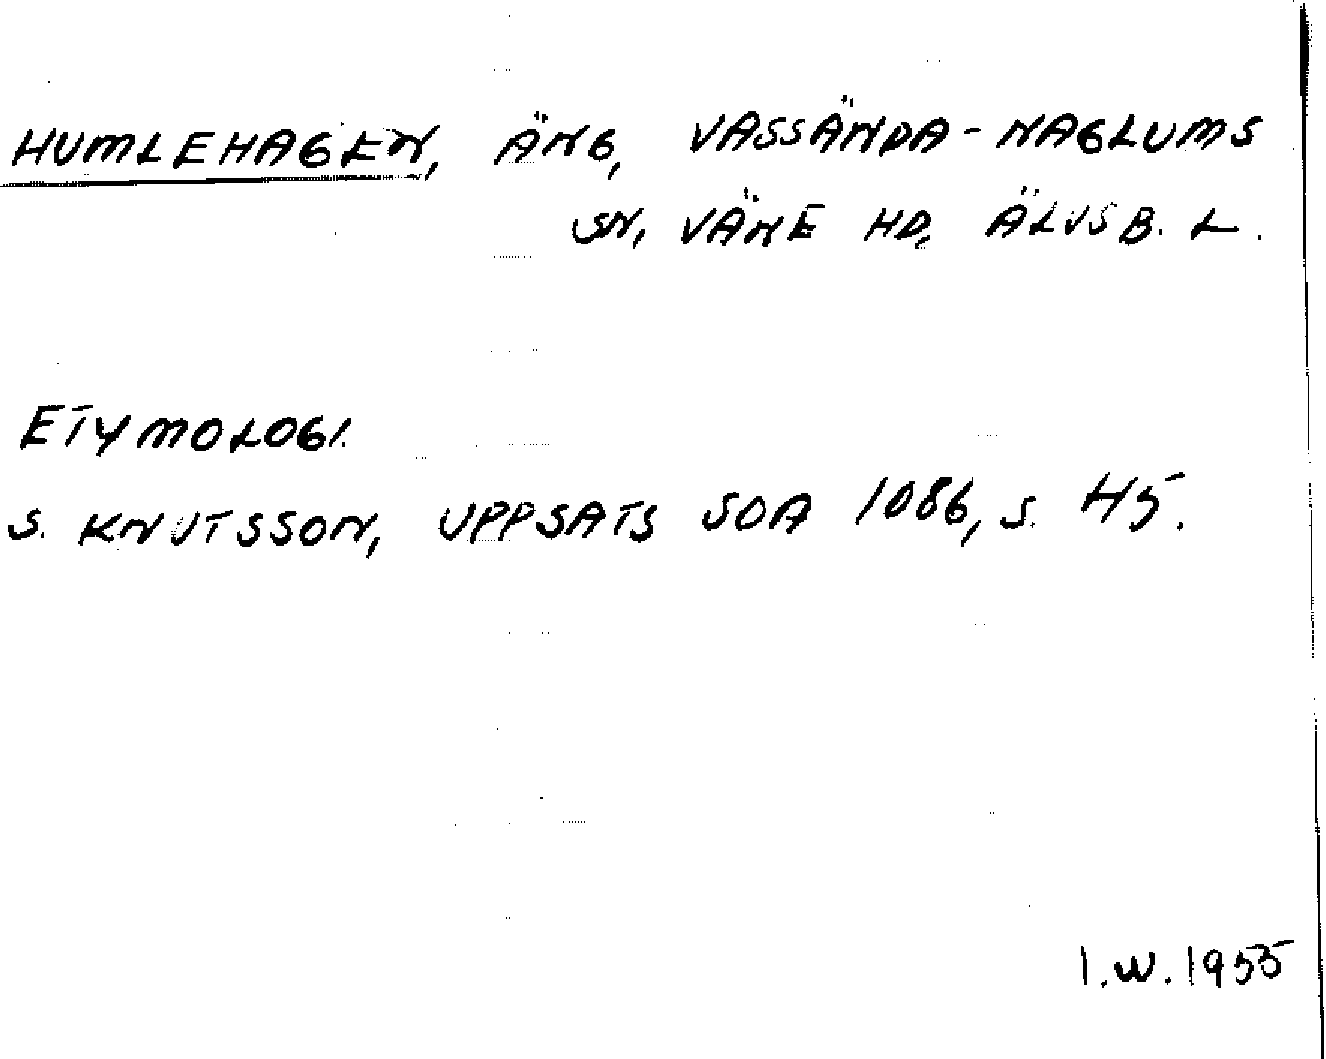 HUMLEHAGEN, ÄNG, VASSÄNDA-NAGLUMS
SN, VÄNE HD, ÄLVSB. L.
ETYMOLOGI.
S. KNUTSSON, UPPSATS SOA 1086, S. 45.
I.W. 1955